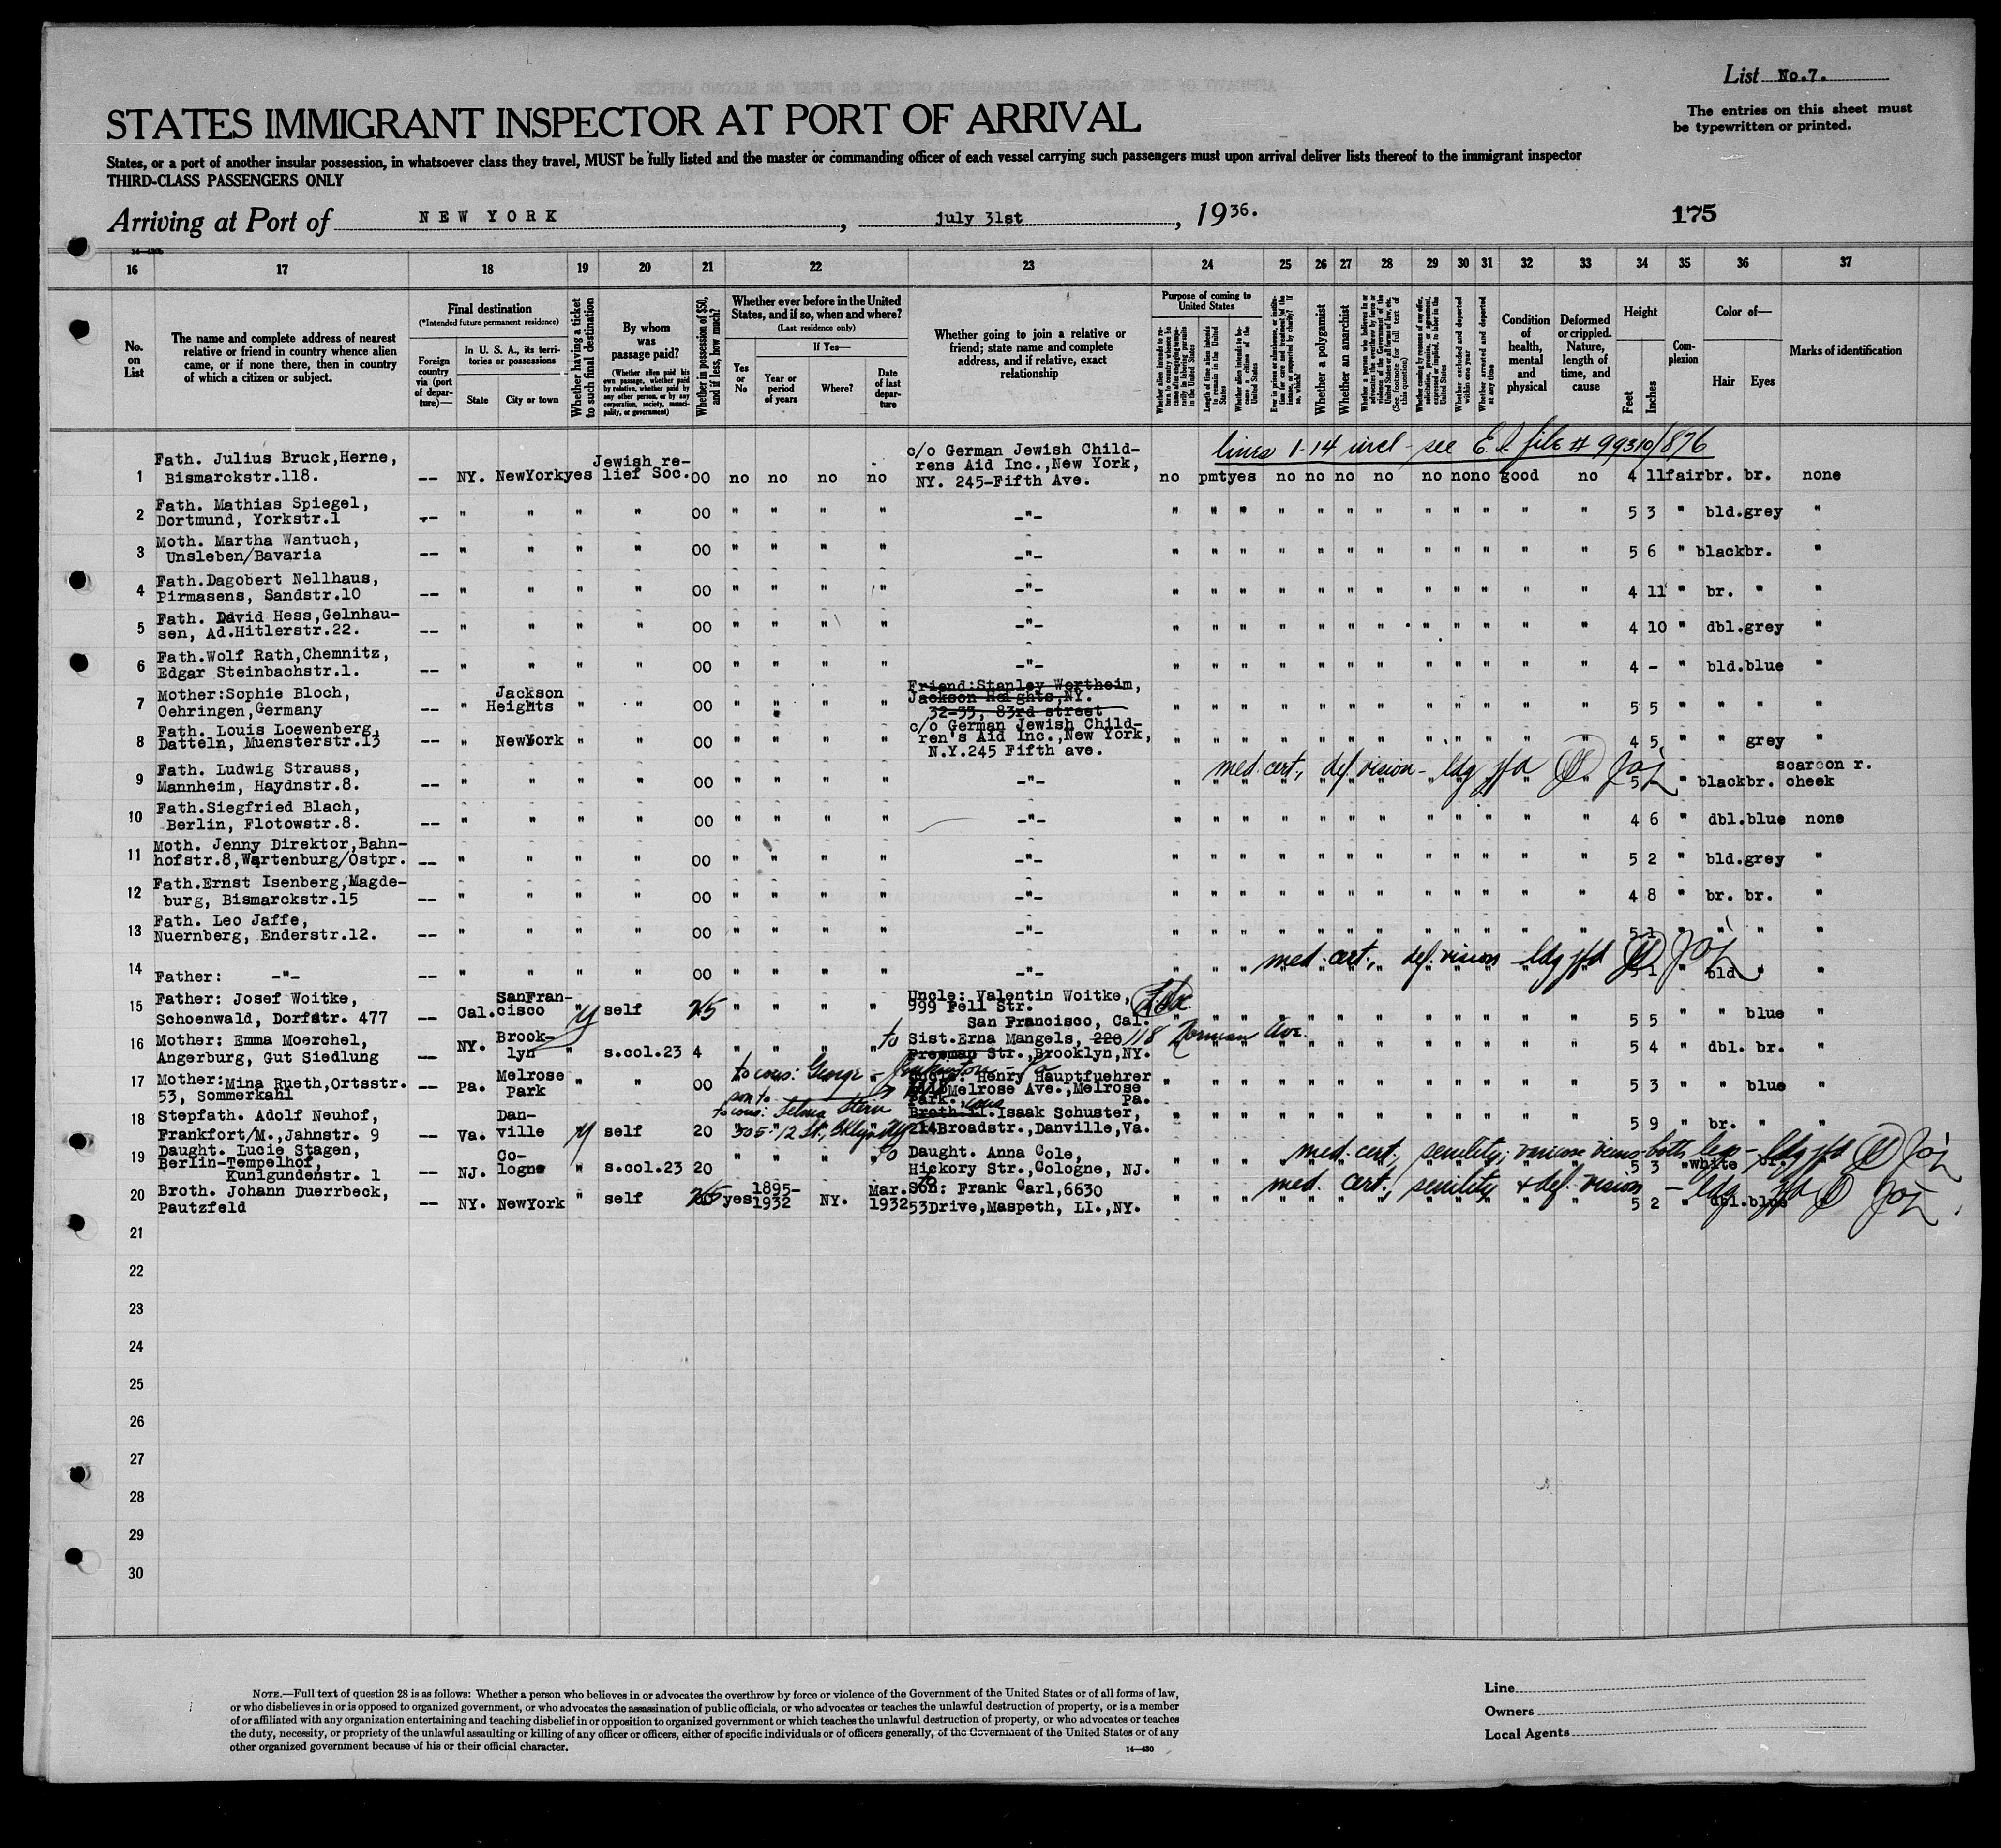 List No.7.
The entries on this sheet must
be typewritten or printed.
STATES IMMIGRANT INSPECTOR AT PORT OF ARRIVAL
States, or a port of another insular possession, in whatsoever class they travel, MUST be fully listed and the master or commanding officer of each vessel carrying such passengers must upon arrival deliver lists thereof to the immigrant inspector
THIRD-CLASS PASSENGERS ONLY
Arriving at Port of NEW YORK, july 31st, 1936.
175
16 17 18 19 20 21 22 23 24 25 26 27 28 29 30 31 32 33 34 35 36 37
No. on List
The name and complete address of nearest relative or friend in country whence alien came, or if none there, then in country of which a citizen or subject.
Final destination
(*Intended future permanent residence)
Foreign country via (port of departure)—
In U. S. A., its territories or possessions
State
City or town
Whether having a ticket to such final destination
By whom was passage paid?
(Whether alien paid his own passage, whether paid by relative, whether paid by any other person, or by any corporation, society, municipality, or government)
Whether in possession of $50, and if less, how much?
Whether ever before in the United States, and if so, when and where?
(Last residence only)
Yes or No
If Yes—
Year or period of years
Where?
Date of last departure
Whether going to join a relative or friend; state name and complete address, and if relative, exact relationship
Purpose of coming to United States
Length of time alien intends to remain in the United States
Whether alien intends to become a citizen of the United States
Whether a polygamist
Whether an anarchist
Whether excluded and deported within one year
Whether arrested and deported at any time
Condition of health, mental and physical
Deformed or crippled. Nature, length of time, and cause
Height
Feet
Inches
Complexion
Color of—
Hair
Eyes
Marks of identification
lines 1-14 incl - see E.I. file # 99310/876
1 Fath. Julius Bruck,Herne, Bismarckstr.118. -- NY. NewYork yes Jewish relief Soc. 00 no no no no c/o German Jewish Childrens Aid Inc.,New York, NY. 245-Fifth Ave. no pmt yes no no no no no no no good no 4 11 fair br. br. none
2 Fath. Mathias Spiegel, Dortmund, Yorkstr.1 -- " " " " 00 " " " " -"- " " " " " " " " " " " " 5 3 " bld. grey "
3 Moth. Martha Wantuch, Unsleben/Bavaria -- " " " " 00 " " " " -"- " " " " " " " " " " " " 5 6 " black br. "
4 Fath.Dagobert Nellhaus, Pirmasens, Sandstr.10 -- " " " " 00 " " " " -"- " " " " " " " " " " " " 4 11 " br. " "
5 Fath. David Hess,Gelnhausen, Ad.Hitlerstr.22. -- " " " " 00 " " " " -"- " " " " " " " " " " " " 4 10 " dbl. grey "
6 Fath.Wolf Rath,Chemnitz, Edgar Steinbachstr.1. -- " " " " 00 " " " " -"- " " " " " " " " " " " " 4 - " bld. blue "
7 Mother:Sophie Bloch, Oehringen,Germany -- " Jackson Heights " " 00 " " " " Friend:Stanley Wertheim, Jackson Heights,NY. 32-33, 83rd street " " " " " " " " " " " " 5 5 " " " "
8 Fath. Louis Loewenberg, Datteln, Muensterstr.13 -- " NewYork " " 00 " " " " c/o German Jewish Children's Aid Inc.,New York, N.Y.245 Fifth ave. " " " " " " " " " " " " 4 5 " " grey "
9 Fath. Ludwig Strauss, Mannheim, Haydnstr.8. -- " " " " 00 " " " " -"- " med. cert., def. vision - ldg 5 - " black br. scar on r. cheek
10 Fath.Siegfried Blach, Berlin, Flotowstr.8. -- " " " " 00 " " " " -"- " " " " " " " " " " " " 4 6 " dbl. blue none
11 Moth. Jenny Direktor,Bahnhofstr.8,Wartenburg/Ostpr. -- " " " " 00 " " " " -"- " " " " " " " " " " " " 5 2 " bld. grey "
12 Fath.Ernst Isenberg,Magdeburg, Bismarckstr.15 -- " " " " 00 " " " " -"- " " " " " " " " " " " " 4 8 " br. br. "
13 Fath. Leo Jaffe, Nuernberg, Enderstr.12. -- " " " " 00 " " " " -"- " " " " " " " " " " " " 5 1 " " " "
14 Father: -"- -- " " " " 00 " " " " -"- " " " med. cert., def. vision - ldg 5 1 " bld " "
15 Father: Josef Woitke, Schoenwald, Dorfstr. 477 -- Cal. SanFrancisco " self 25 " " " " Uncle: Valentin Woitke, 999 Fell Str. San Francisco, Cal. " " " " " " " " " " " " 5 5 " " blue "
16 Mother: Emma Moerchel, Angerburg, Gut Siedlung -- NY. Brooklyn " s.col.23 4 " " " " to Sist.Erna Mangels, 220 Freeman Str.,Brooklyn,NY. 118 Norman Ave. " " " " " " " " " " 5 4 " dbl. br. "
17 Mother:Mina Rueth,Ortsstr. 53, Sommerkahl -- Pa. Melrose Park " " 00 to cous: George Uncle: Henry Hauptfuehrer Melrose Ave.,Melrose Park., Pa. " " " " " " " " " " " " 5 3 " " blue "
18 Stepfath. Adolf Neuhof, Frankfort/M.,Jahnstr. 9 -- Va. Danville y self 20 to cous: Selma Stern 305-12 St., Bklyn NY Broth.il.Isaak Schuster, 214Broadstr.,Danville,Va. " " " " " " " " " " " " 5 9 " br. " "
19 Daught. Lucie Stagen, Berlin-Tempelhof, Kunigundenstr. 1 -- NJ. Cologne " s.col.23 20 " " " " to Daught. Anna Cole, Hickory Str.,Cologne, NJ. " " " med. cert., senility; varicose veins both legs - ldg 5 3 " white br.
20 Broth. Johann Duerrbeck, Pautzfeld -- NY. NewYork " self 25 yes 1895-1932 NY. Mar. 1932 Son: Frank Carl,6630 53Drive,Maspeth, LI.,NY. " " " med. cert., senility & def. vision - ldg 5 2 " dbl. blue
21
22
23
24
25
26
27
28
29
30
NOTE.—Full text of question 28 is as follows: Whether a person who believes in or advocates the overthrow by force or violence of the Government of the United States or of all forms of law,
or who disbelieves in or is opposed to organized government, or who advocates the assassination of public officials, or who advocates or teaches the unlawful destruction of property, or is a member
of or affiliated with any organization entertaining and teaching disbelief in or opposition to organized government or which teaches the unlawful destruction of property, or who advocates or teaches
the duty, necessity, or propriety of the unlawful assaulting or killing of any officer or officers, either of specific individuals or of officers generally, of the Government of the United States or of any
other organized government because of his or their official character.
14—430
Line
Owners
Local Agents